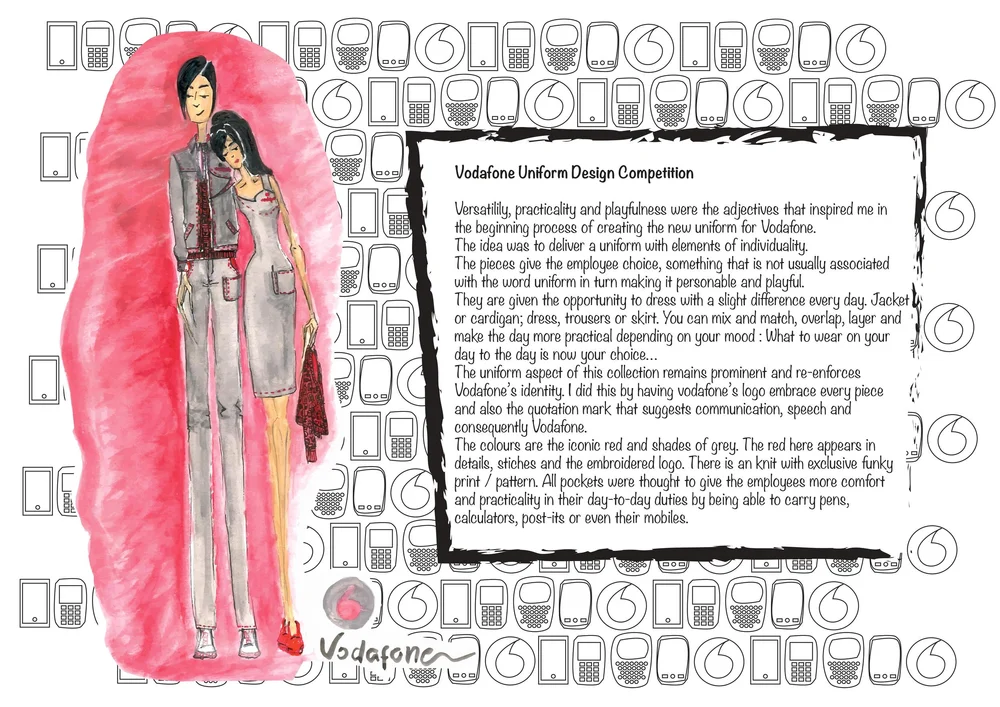 Vodafone Uniform Design Competition
Versatilily, practicality and playfulness were the adjectives that inspired me in
the beginning process of creating the new uniform for Vodafone.
The idea was to deliver a uniform with elements of individuality.
The pieces give the employee choice, something that is not usually associated
with the word uniform in turn making it personable and playful.
They are given the opportunity to dress with a slight difference every day. Jacket
or cardigan; dress, trousers or skirt. You can mix and match, overlap, layer and
make the day more practical depending on your mood : What to wear on your
day to the day is now your choice...
The uniform aspect of this collection remains prominent and re-enforces
Vodafone's identity. I did this by having vodafone's logo embrace every piece
and also the quotation mark that suggests communication, speech and
consequently Vodafone.
The colours are the iconic red and shades of grey. The red here appears in
details, stiches and the embroidered logo. There is an knit with exclusive funky
print / pattern. All pockets were thought to give the employees more comfort
and practicality in their day-to-day duties by being able to carry pens,
calculators, post-its or even their mobiles.
Vodafone